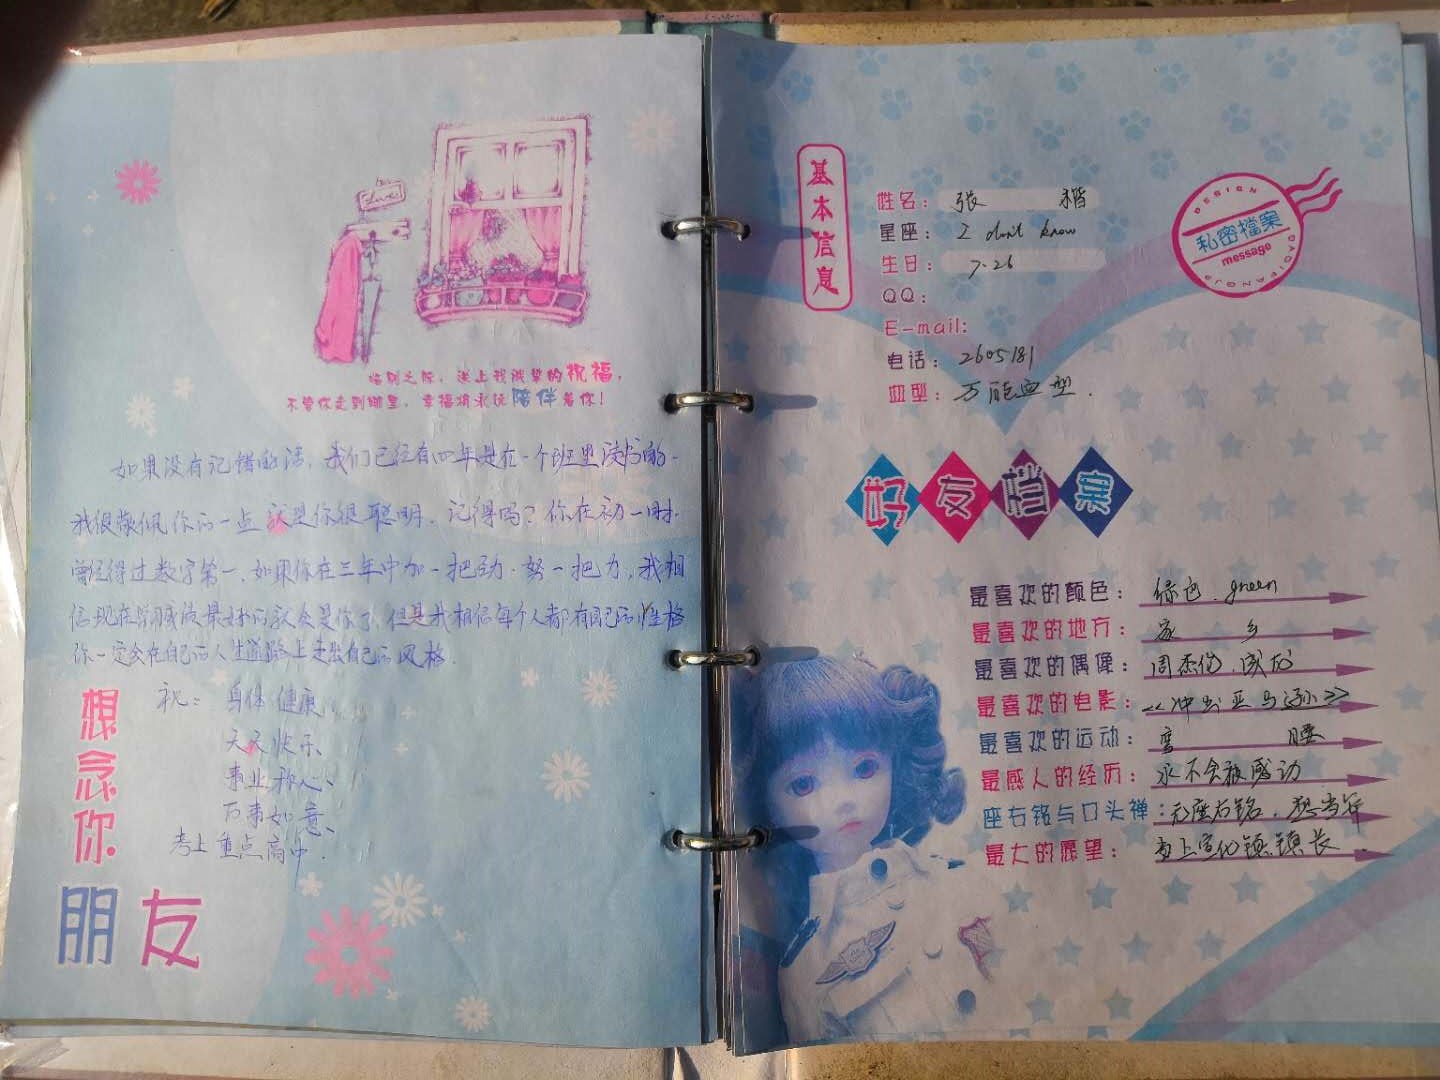 Love
临别之际，送上我诚挚的祝福，
不管你走到哪里，幸福将永远陪伴着你！
如果没有记错的话，我们已经有四年是在一个班里读书的.
我很敬佩你的一点就是你很聪明。记得吗？你在初一时.
曾经得过数学第一.如果你在三年中加一把劲.努一把力，我相
信现在学习成绩最好的就会是你了.但是我相信每个人都有自己的性格
你一定会在自己的人生道路上走出自己的风格.
祝：身体健康
天天快乐
事业称心、
万事如意、
考上重点高中.
想念你
朋友
基本信息
DESIGN
私密檔案
message
姓名：张 楷
星座：I don't know
生日：7.26
QQ：
E-mail:
电话：2605181
血型：万能血型.
好友档案
最喜欢的颜色：绿色.green
最喜欢的地方：家 乡
最喜欢的偶像：周杰伦.成龙
最喜欢的电影：<<冲出亚马逊>>
最喜欢的运动：弯 腰
最感人的经历：永不会被感动
座右铭与口头禅：无座右铭.
最大的愿望：当上宣化镇镇长